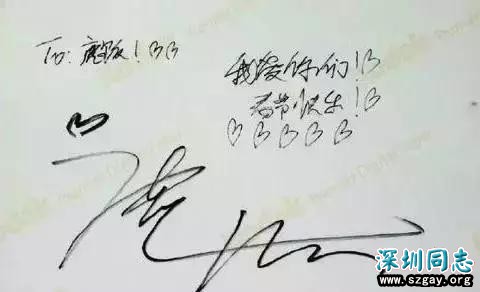 To: 鹿饭!♡♡
我爱你们!♡
春节快乐!♡
♡♡♡♡♡
深圳同志
www.szgay.org